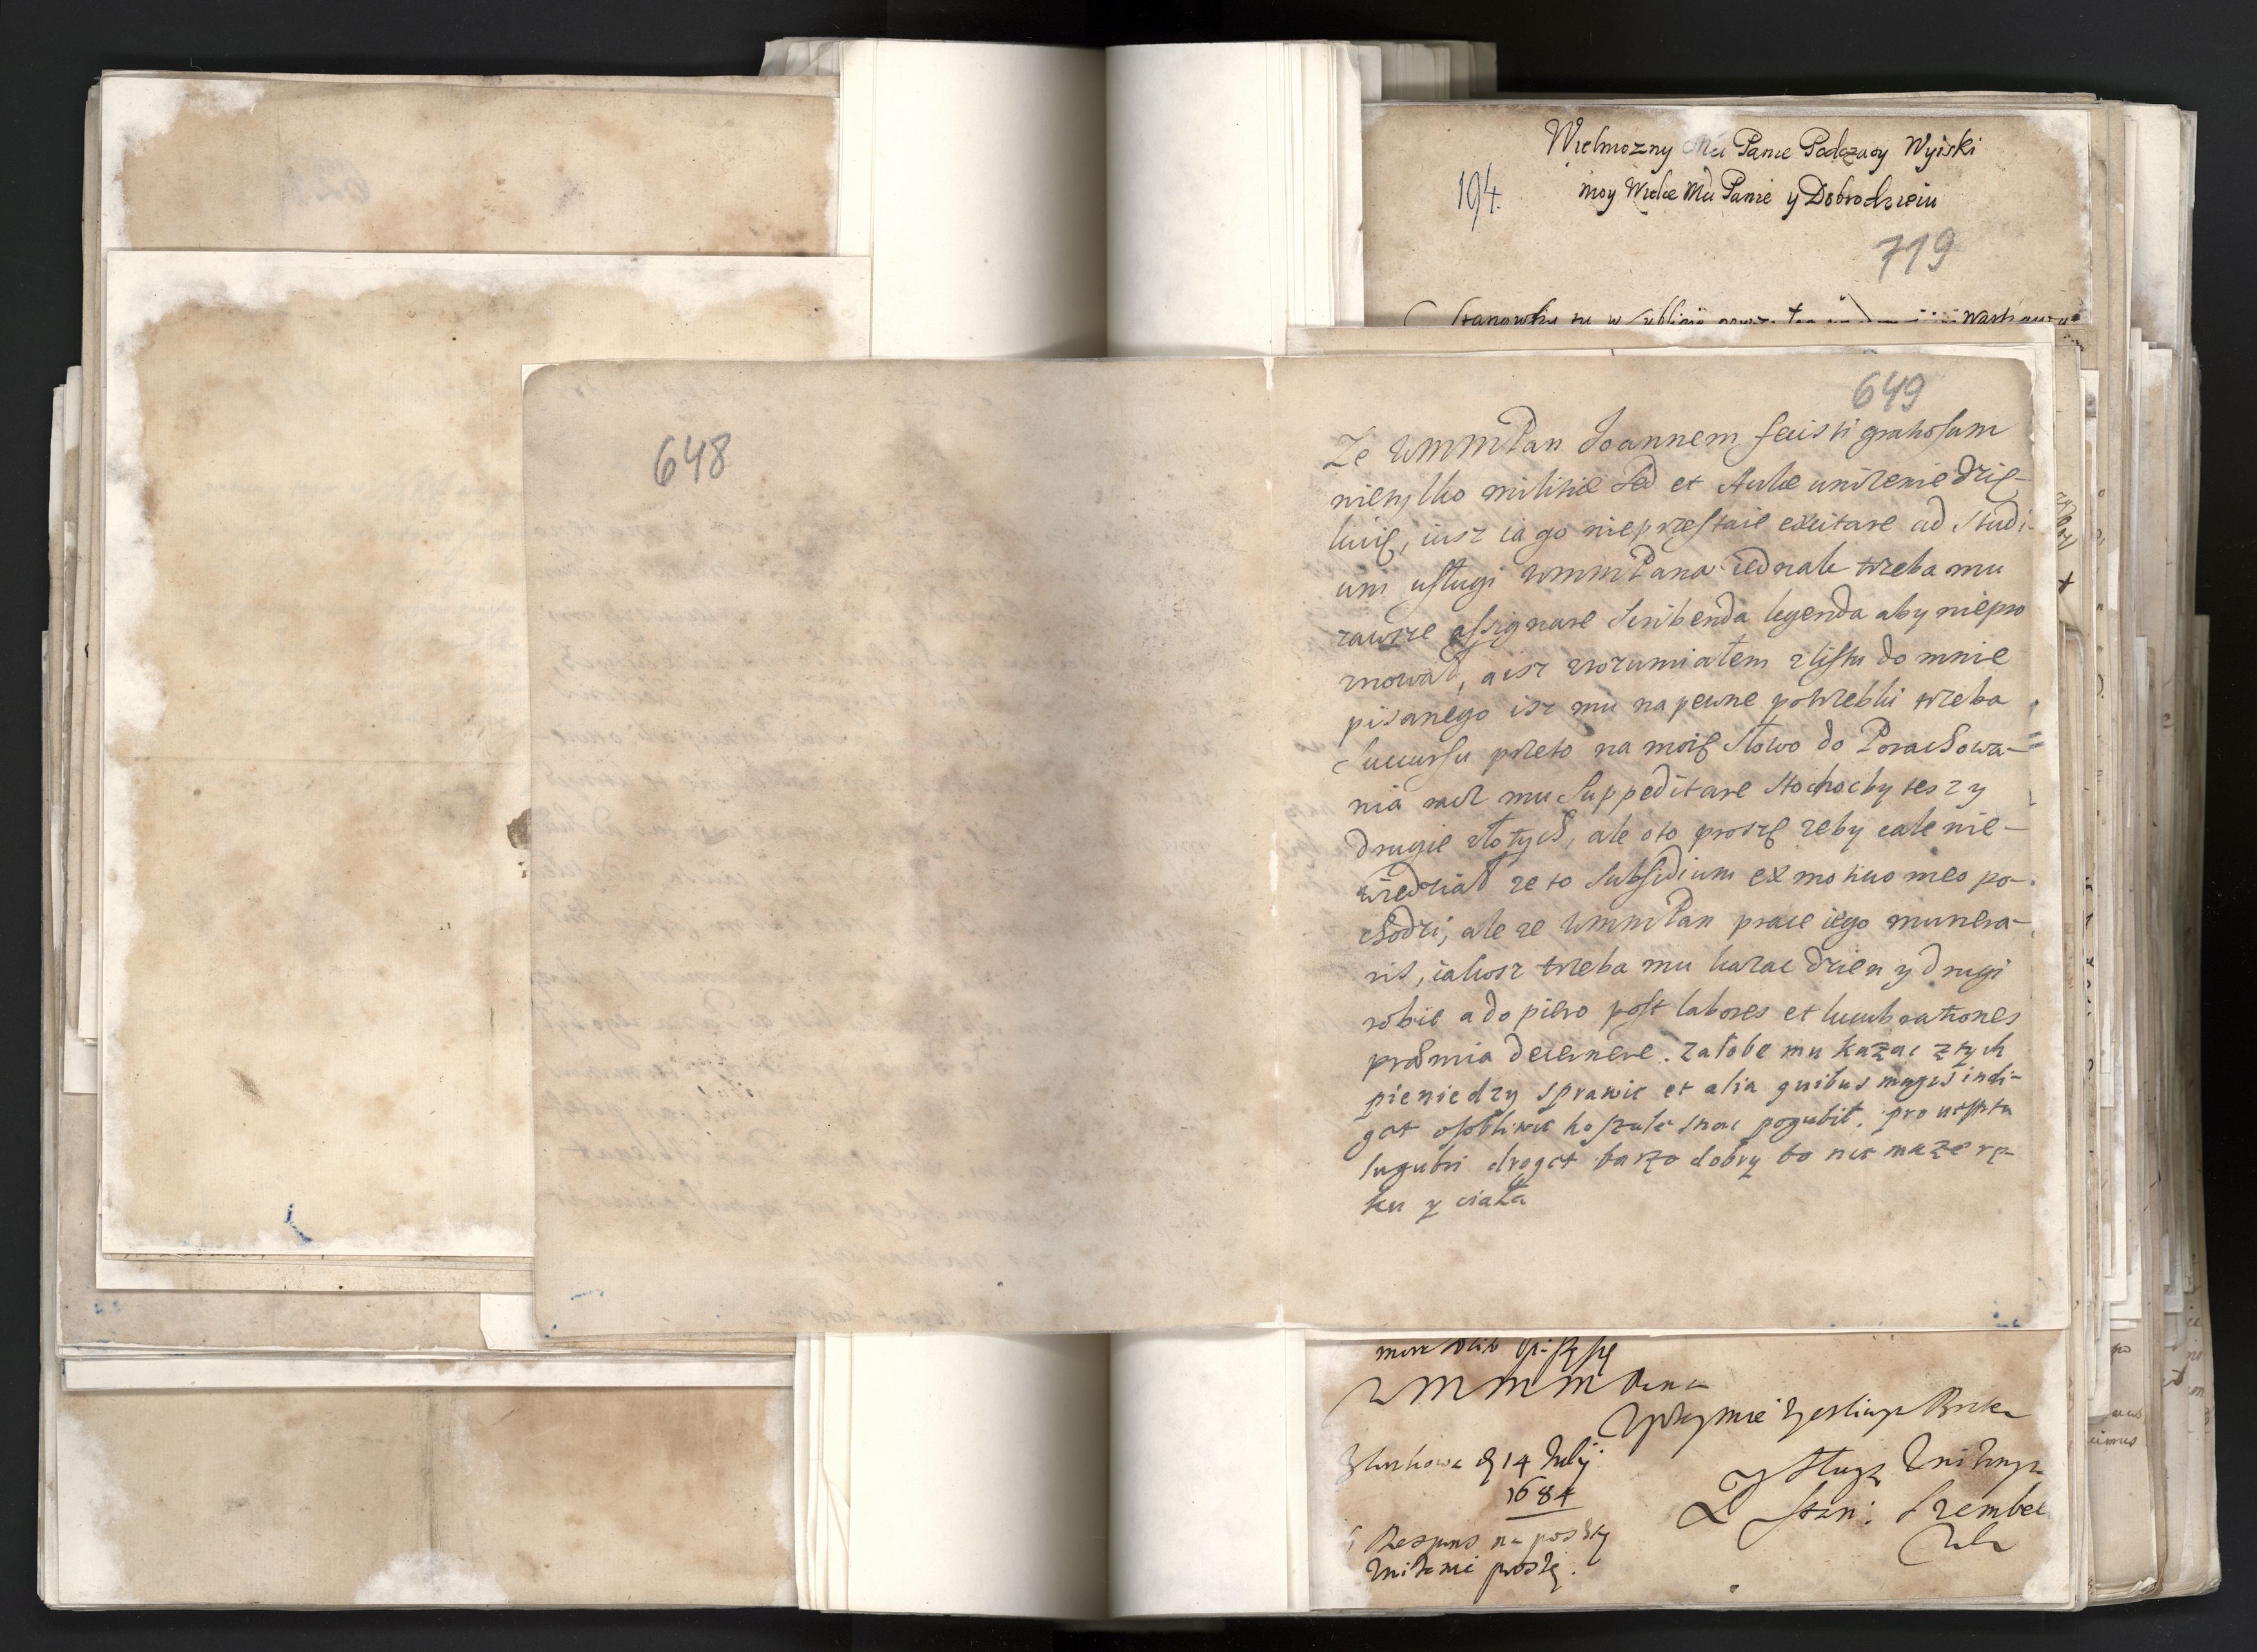 Wielmozny Mci Panie Podczaszy Wyiski
194.
moy Wielce Mci Panie y Dobrodzieiu
719
648
649
Ze WMMPan Joannem fecisti gratiosum
nietylko militiæ sed et Aulæ unizenie dzię-
kuię, iusz ia go nieprzestaie excitare ad studi-
um usługi WMMPana iednak trzeba mu
zawsze assignare scribenda legenda aby niepro
znował, a isz zrozumiałem z listu do mnie
pisanego isz mu na pewne potrzebki trzeba
succursu przeto na moię słowo do Porachowa-
nia racz mu suppeditare sto chocby tesz y
drugie złotych, ale oto proszę zeby cale nie-
wiedział ze to subsidium ex motivo meo po-
chodzi, ale ze WMMPan prace iego munera-
ris, iakosz trzeba mu kazac dzien y drugi
robic a dopiero post labores et lucubrationes
præmia decernere. Załobe mu kazac z tych
pieniedzy sprawic et alia quibus magis indi-
get osobliwie koszule snac pogubił. pro
lugubri droget barzo dobry bo nie maze rę-
ku y ciała
WMMM Pana
14 July
1684
Respons na
proszę.